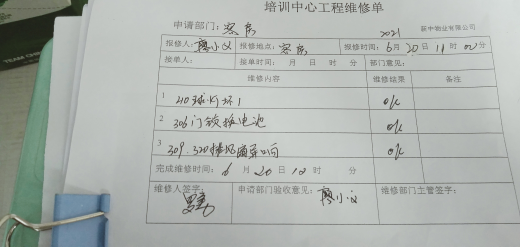 培训中心工程维修单
申请部门: 客房 2021 新中物业有限公司
报修人: 廖小义 报修地点: 客房 报修时间: 6月20日11时00分
接单人: 接单时间: 月 日 时 分 部门意见:
维修内容 维修结果 备注
1 210球灯坏1 ok
2 306门锁换电池 ok
3 309.320 ok
完成维修时间: 6月20日12时 分
维修人签字: 申请部门验收意见: 廖小义 维修部门主管签字: